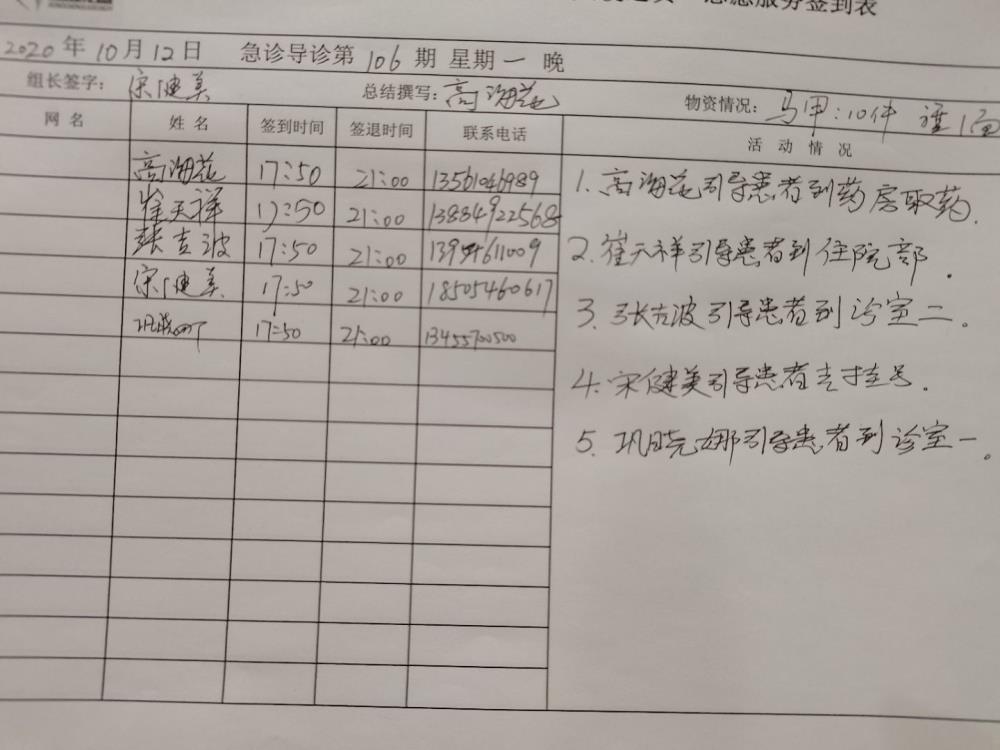 志愿服务签到表
2020年10月12日 急诊导诊第106期 星期一 晚
组长签字：宋健美 总结撰写：高海花 物资情况：马甲：10件
网名 姓名 签到时间 签退时间 联系电话 活动情况
高海花 17:50 21:00 13561046989
崔天祥 17:50 21:00 13884922568
张吉波 17:50 21:00
宋健美 17:50 21:00 18505460617
17:50 21:00 13455700500
1. 高海花引导患者到药房取药.
2. 崔天祥引导患者到住院部.
3. 张吉波引导患者到诊室二.
4. 宋健美引导患者去挂号.
5. 巩晓娜引导患者到诊室一。